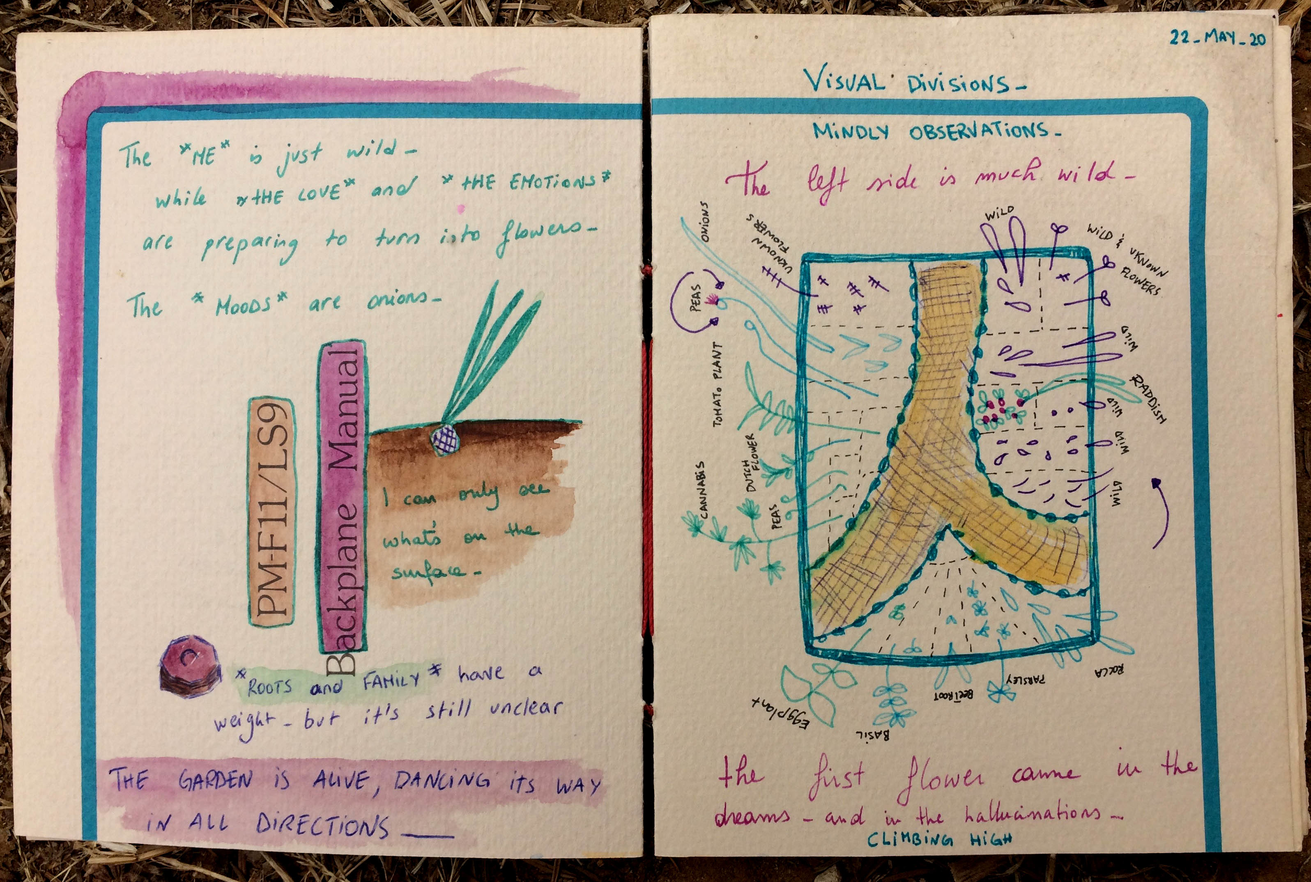 The *ME* is just wild -
while *tHE LOVE* and *tHE EMOtiONS*
are preparing to turn into flowers -
The *MOODS* are onions -
PM-F11/LS9
Backplane Manual
I can only see
what's on the
surface -
*ROOTS and FAMILY* have a
weight - but it's still unclear
THE GARDEN is ALIVE, DANCING its WAY
iN ALL DiRECTIONS
22 - MAY - 20
VisUAL DiVisiONS -
MiNDLY OBSERVATIONS -
The left side is much wild -
ONIONS
UKNOWN
FLOWERS
WiLD
WiLD & UKNOWN
FLOWERS
PEAS
WiLD
RADDISH
TOMATO PLANT
WiLD
WiLD
WiLD
DUTCH
FLOWER
CANNABIS
PEAS
Eggplant
BASiL
BEETROOT
PARSLEY
ROCCA
the first flower came in the
dreams - and in the hallucinations -
CLiMBiNG HiGH